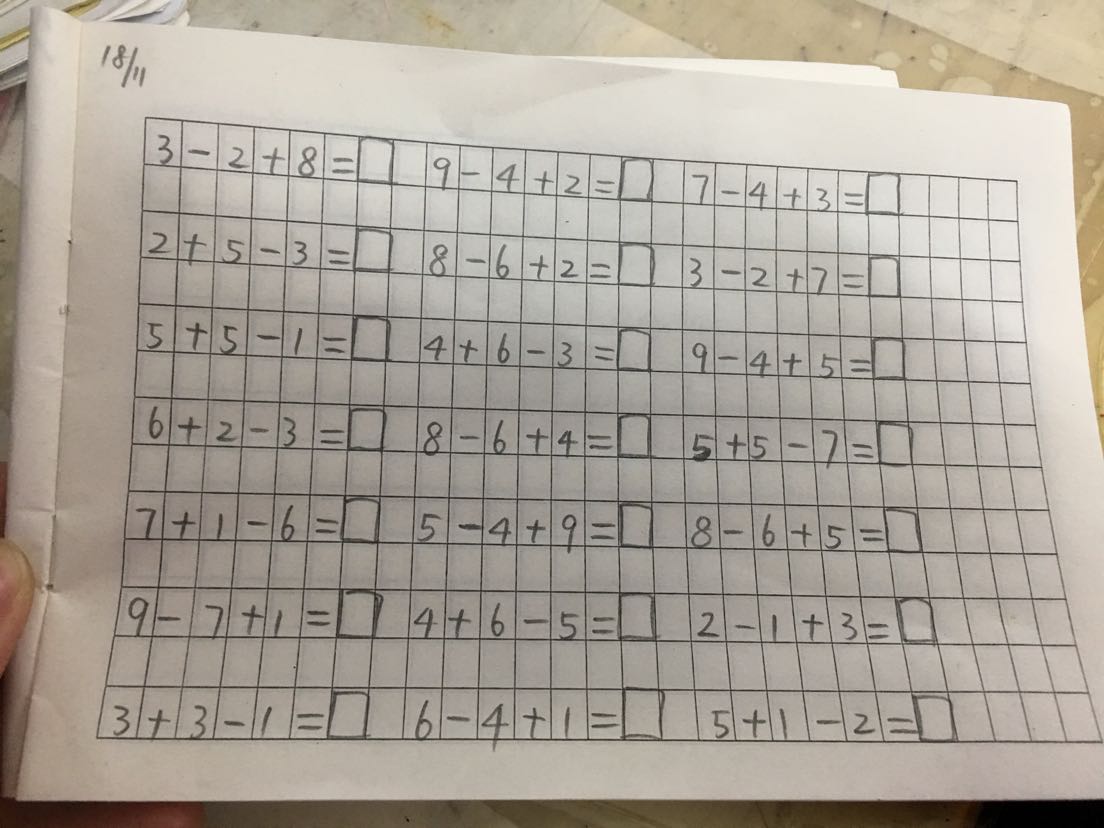 18/11
3-2+8=□ 9-4+2=□ 7-4+3=□
2+5-3=□ 8-6+2=□ 3-2+7=□
5+5-1=□ 4+6-3=□ 9-4+5=□
6+2-3=□ 8-6+4=□ 5+5-7=□
7+1-6=□ 5-4+9=□ 8-6+5=□
9-7+1=□ 4+6-5=□ 2-1+3=□
3+3-1=□ 6-4+1=□ 5+1-2=□